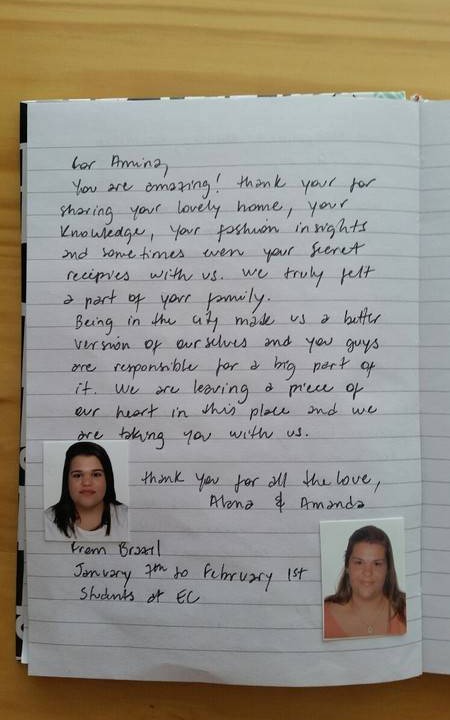 for Amina,
You are amazing! thank your for
sharing your lovely home, your
knowledge, your fashion insights
and sometimes even your secret
recipies with us. we truly felt
a part of your family.
Being in the city made us a better
version of ourselves and you guys
are responsible for a big part of
it. We are leaving a piece of
our heart in this place and we
are taking you with us.
thank you for all the love,
Alana & Amanda
From Brazil
January 7th to February 1st
Students at EC